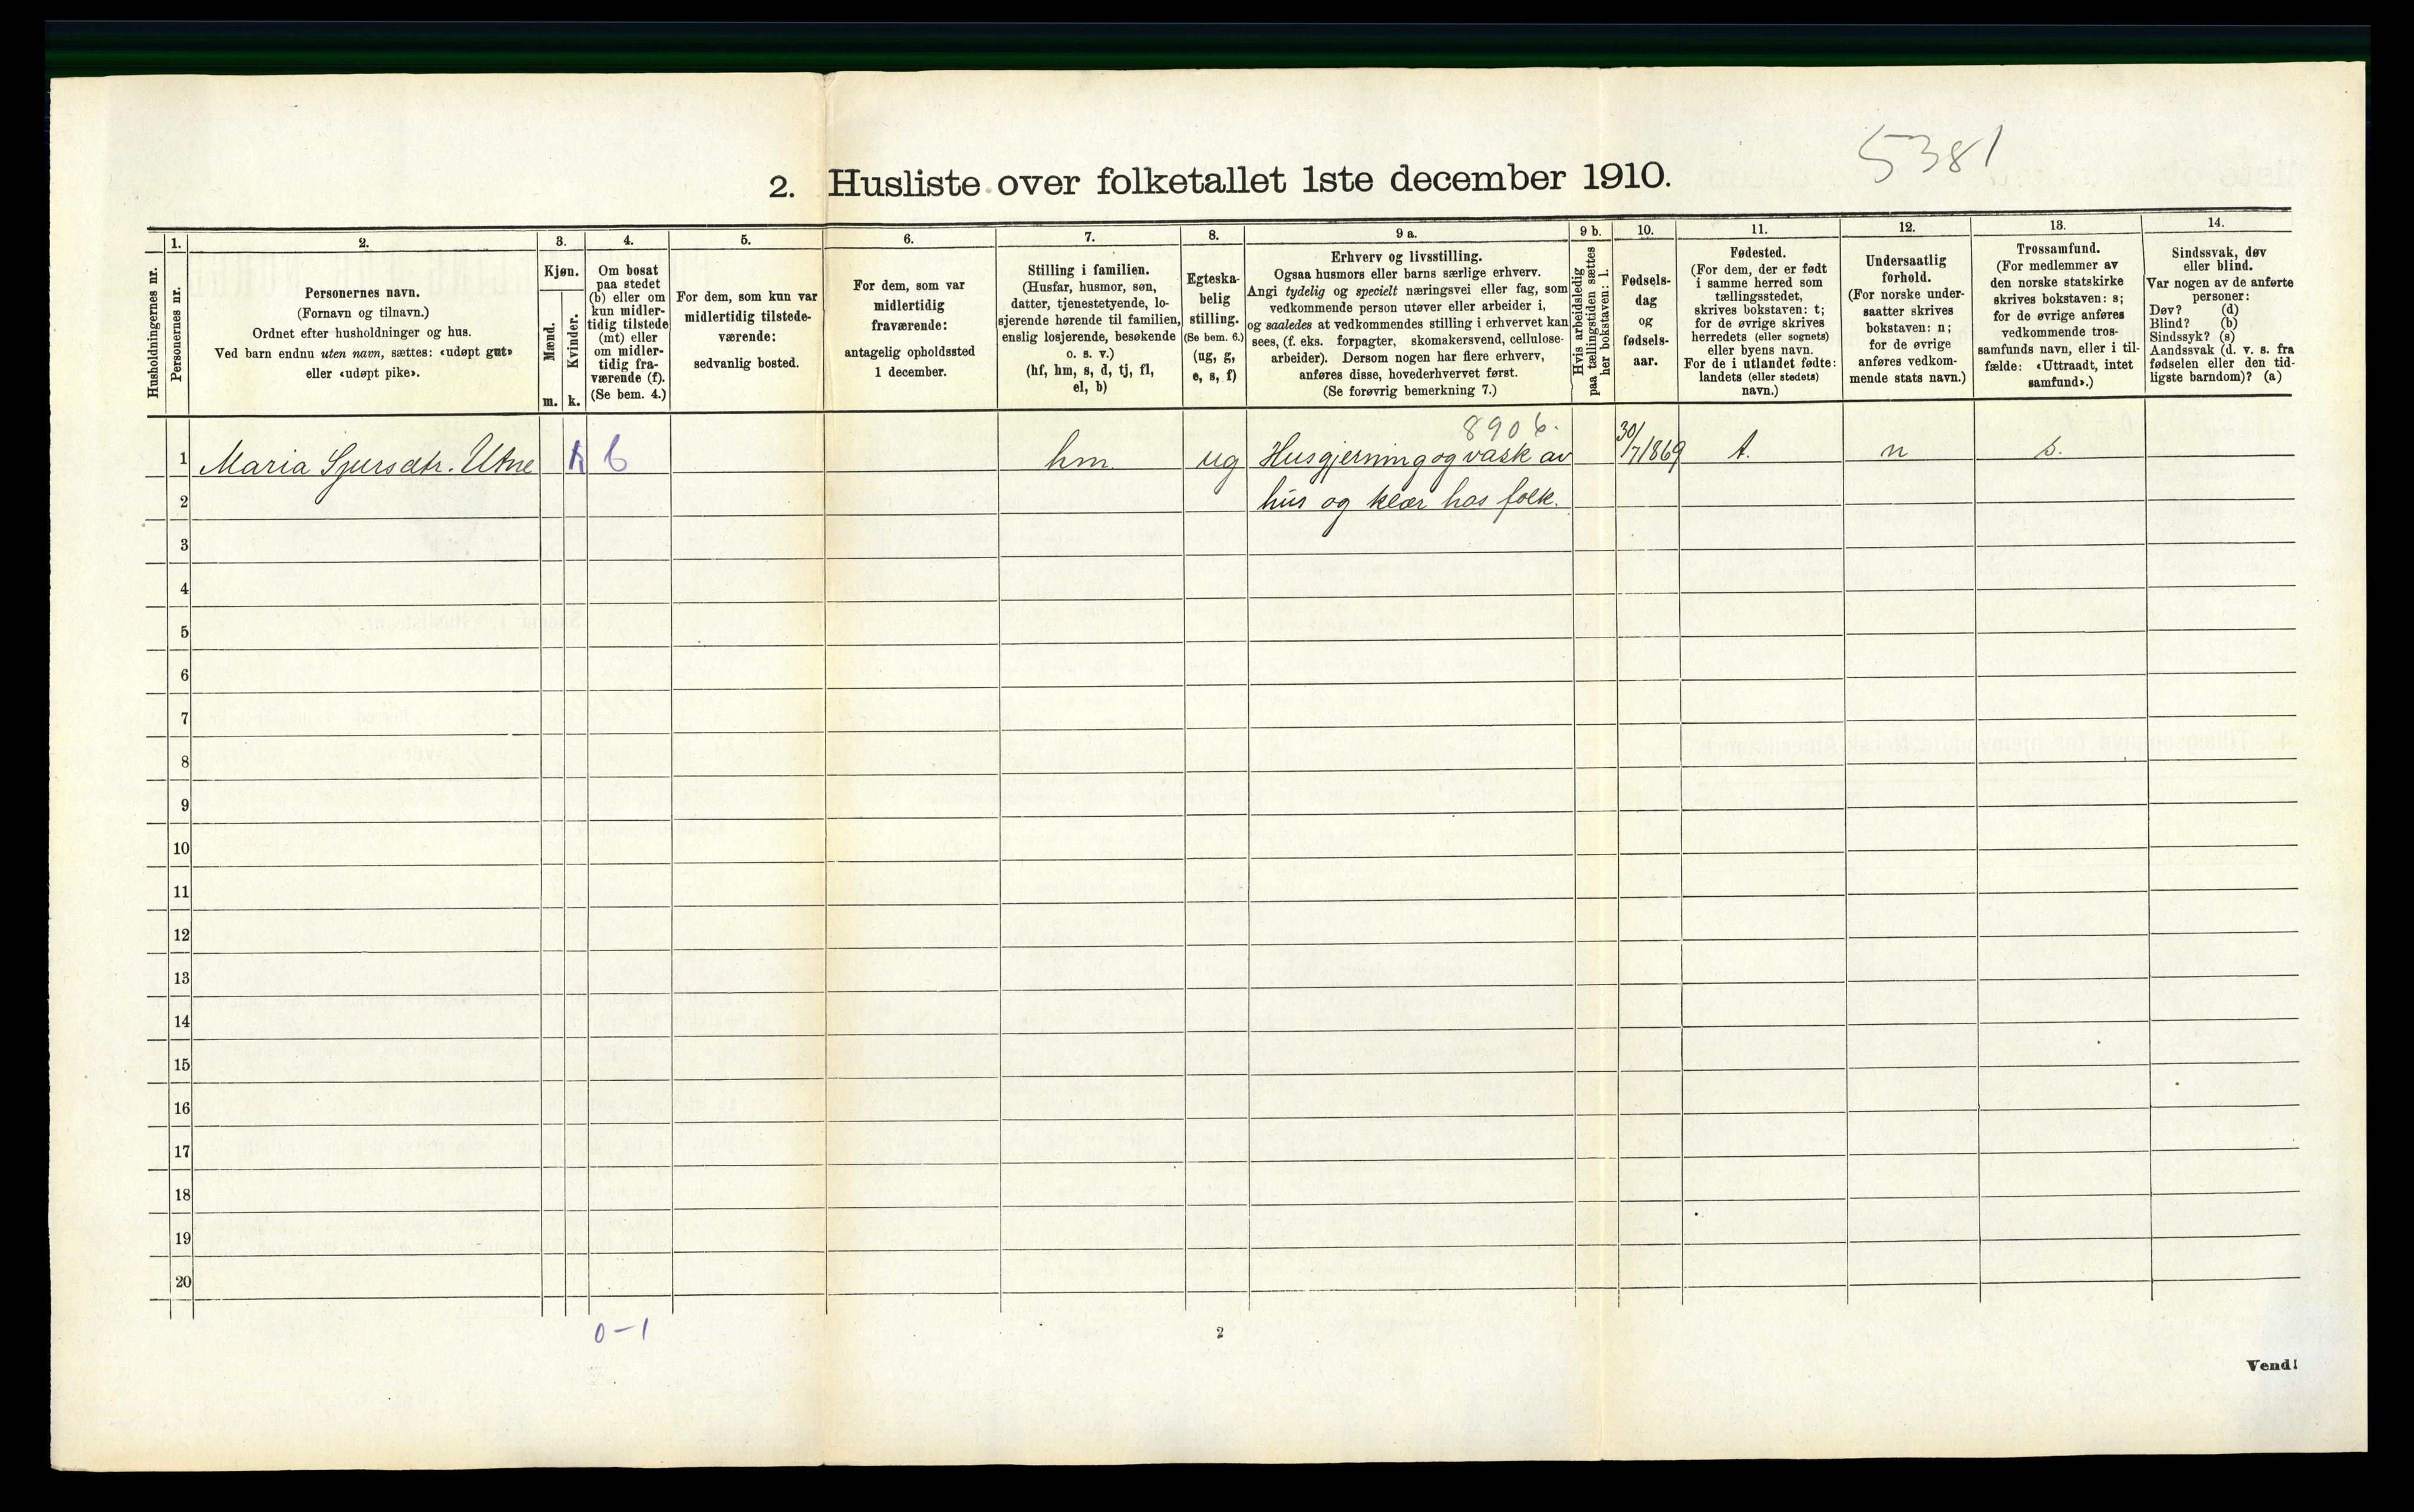 5381
2. Husliste over folketallet 1ste december 1910.
Husholdningernes nr.
1.
Personernes nr.
2.
Personernes navn.
(Fornavn og tilnavn.)
Ordnet efter husholdninger og hus.
Ved barn endnu uten navn, sættes: «udøpt gut»
eller «udøpt pike».
3.
Kjøn.
Mænd.
Kvinder.
m. k.
4.
Om bosat
paa stedet
(b) eller om
kun midler-
tidig tilstede
(mt) eller
om midler-
tidig fra-
værende (f).
(Se bem. 4.)
5.
For dem, som kun var
midlertidig tilstede-
værende:
sedvanlig bosted.
6.
For dem, som var
midlertidig
fraværende:
antagelig opholdssted
1 december.
7.
Stilling i familien.
(Husfar, husmor, søn,
datter, tjenestetyende, lo-
sjerende hørende til familien,
enslig losjerende, besøkende
o. s. v.)
(hf, hm, s, d, tj, fl,
el, b)
8.
Egteska-
belig
stilling.
(Se bem. 6.)
(ug, g,
e, s, f)
9 a.
Erhverv og livsstilling.
Ogsaa husmors eller barns særlige erhverv.
Angi tydelig og specielt næringsvei eller fag, som
vedkommende person utøver eller arbeider i,
og saaledes at vedkommendes stilling i erhvervet kan
sees, (f. eks. forpagter, skomakersvend, cellulose-
arbeider). Dersom nogen har flere erhverv,
anføres disse, hovederhvervet først.
(Se forøvrig bemerkning 7.)
9 b.
Hvis arbeidsledig
paa tællingstiden sættes
her bokstaven: l.
10.
Fødsels-
dag
og
fødsels-
aar.
11.
Fødested.
(For dem, der er født
i samme herred som
tællingsstedet,
skrives bokstaven: t;
for de øvrige skrives
herredets (eller sognets)
eller byens navn.
For de i utlandet fødte:
landets (eller stedets)
navn.)
12.
Undersaatlig
forhold.
(For norske under-
saatter skrives
bokstaven: n;
for de øvrige
anføres vedkom-
mende stats navn.)
13.
Trossamfund.
(For medlemmer av
den norske statskirke
skrives bokstaven: s;
for de øvrige anføres
vedkommende tros-
samfunds navn, eller i til-
fælde: «Uttraadt, intet
samfund».)
14.
Sindssvak, døv
eller blind.
Var nogen av de anførte
personer:
Døv? (d)
Blind? (b)
Sindssyk? (s)
Aandssvak (d. v. s. fra
fødselen eller den tid-
ligste barndom)? (a)
8906.
1 Maria Sjursdtr. Utne k b hm. ug Husgjerning og vask av 30/7 1869 t. n s.
2 hus og klær hos folk.
3
4
5
6
7
8
9
10
11
12
13
14
15
16
17
18
19
20
0-1
2
Vend!